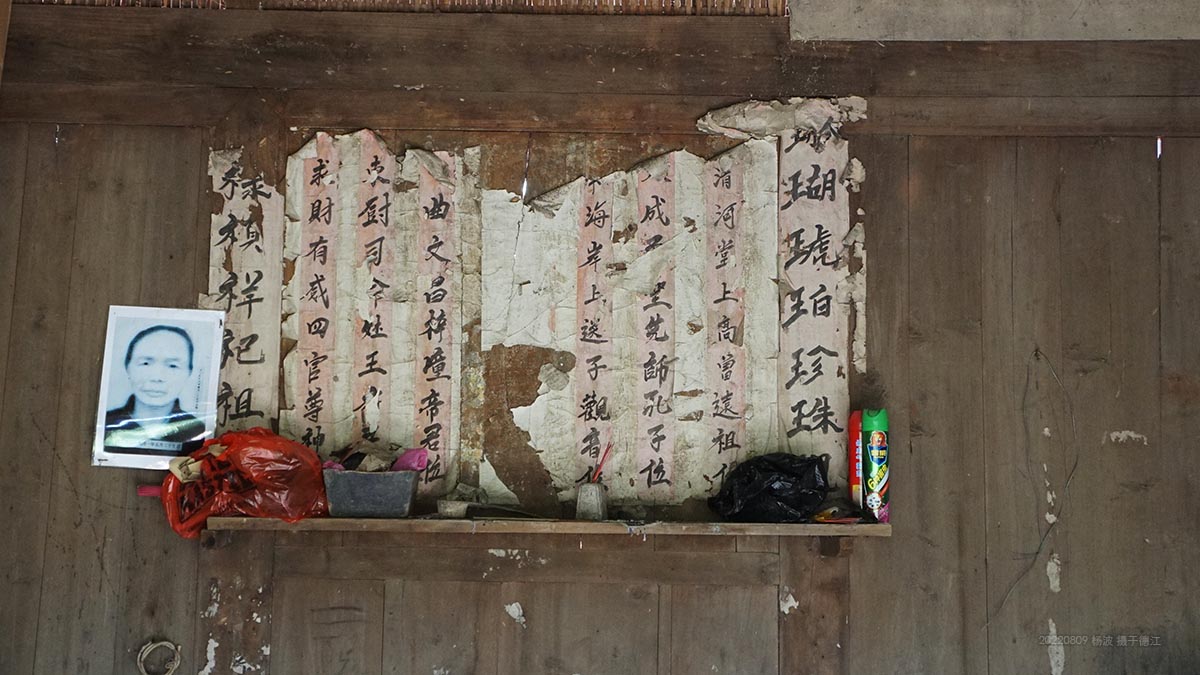 瑚琥珀珍珠
河堂上高曾遠祖
成至聖先師孔子位
海岸上送子觀音
曲文昌梓潼帝君位
厨司令灶王
求財有感四官尊神
禄禎祥祀祖
20220809 杨波 摄于德江